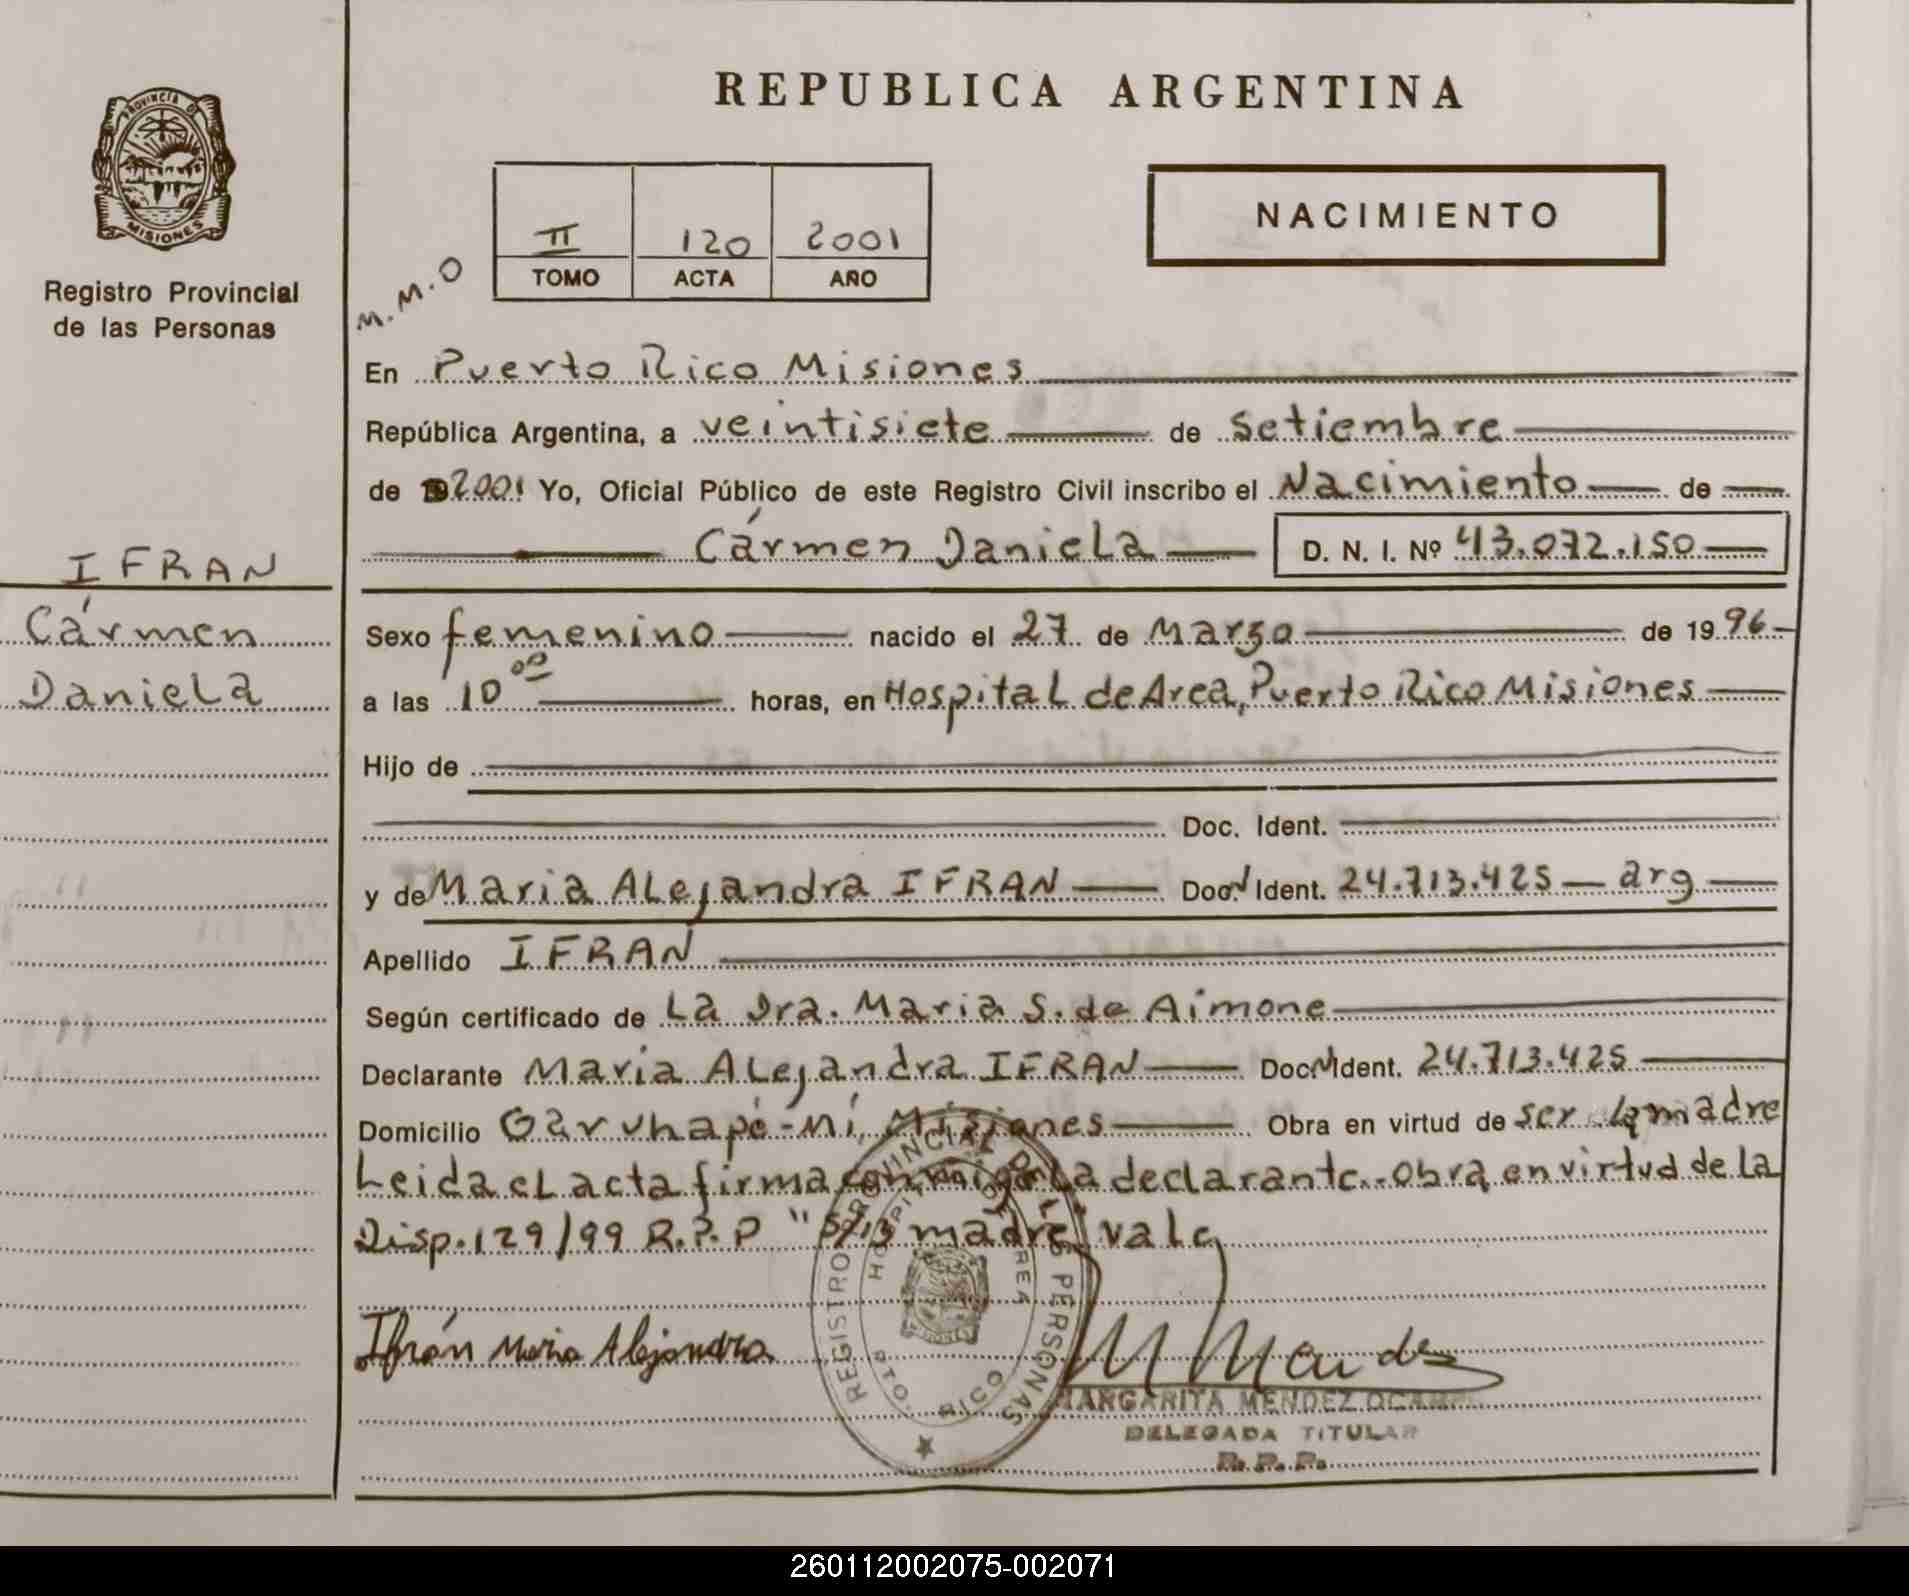 REPUBLICA ARGENTINA
PROVINCIA DE
MISIONES
Registro Provincial
de las Personas
NACIMIENTO
II 120 2001
TOMO ACTA AÑO
M.M.O
En Puerto Rico Misiones
República Argentina, a veintisiete de Setiembre
de 2001 Yo, Oficial Público de este Registro Civil inscribo el Nacimiento de
Cármen Daniela D. N. I. Nº 43.072.150
IFRAN
Cármen
Daniela
Sexo femenino nacido el 27 de Marzo de 1996
a las 10 00 horas, en Hospital de Area, Puerto Rico Misiones
Hijo de
Doc. Ident.
y de Maria Alejandra IFRAN Doc N Ident. 24.713.425 arg
Apellido IFRAN
Según certificado de La Dra. Maria S. de Aimone
Declarante Maria Alejandra IFRAN Doc N Ident. 24.713.425
Domicilio Garuhapé-Mí, Misiones Obra en virtud de ser La madre
Leida el acta firma conmigo La declarante.-Obra en virtud de la
Disp.129/99 R.P.P " S/B madre" vale
Ifrán Maria Alejandra
REGISTRO PROVINCIAL DE LAS PERSONAS
HOSPITAL DE AREA
PTO. RICO
M Mendez
MARGARITA MENDEZ OCAMPO
DELEGADA TITULAR
R. P. P.
260112002075-002071